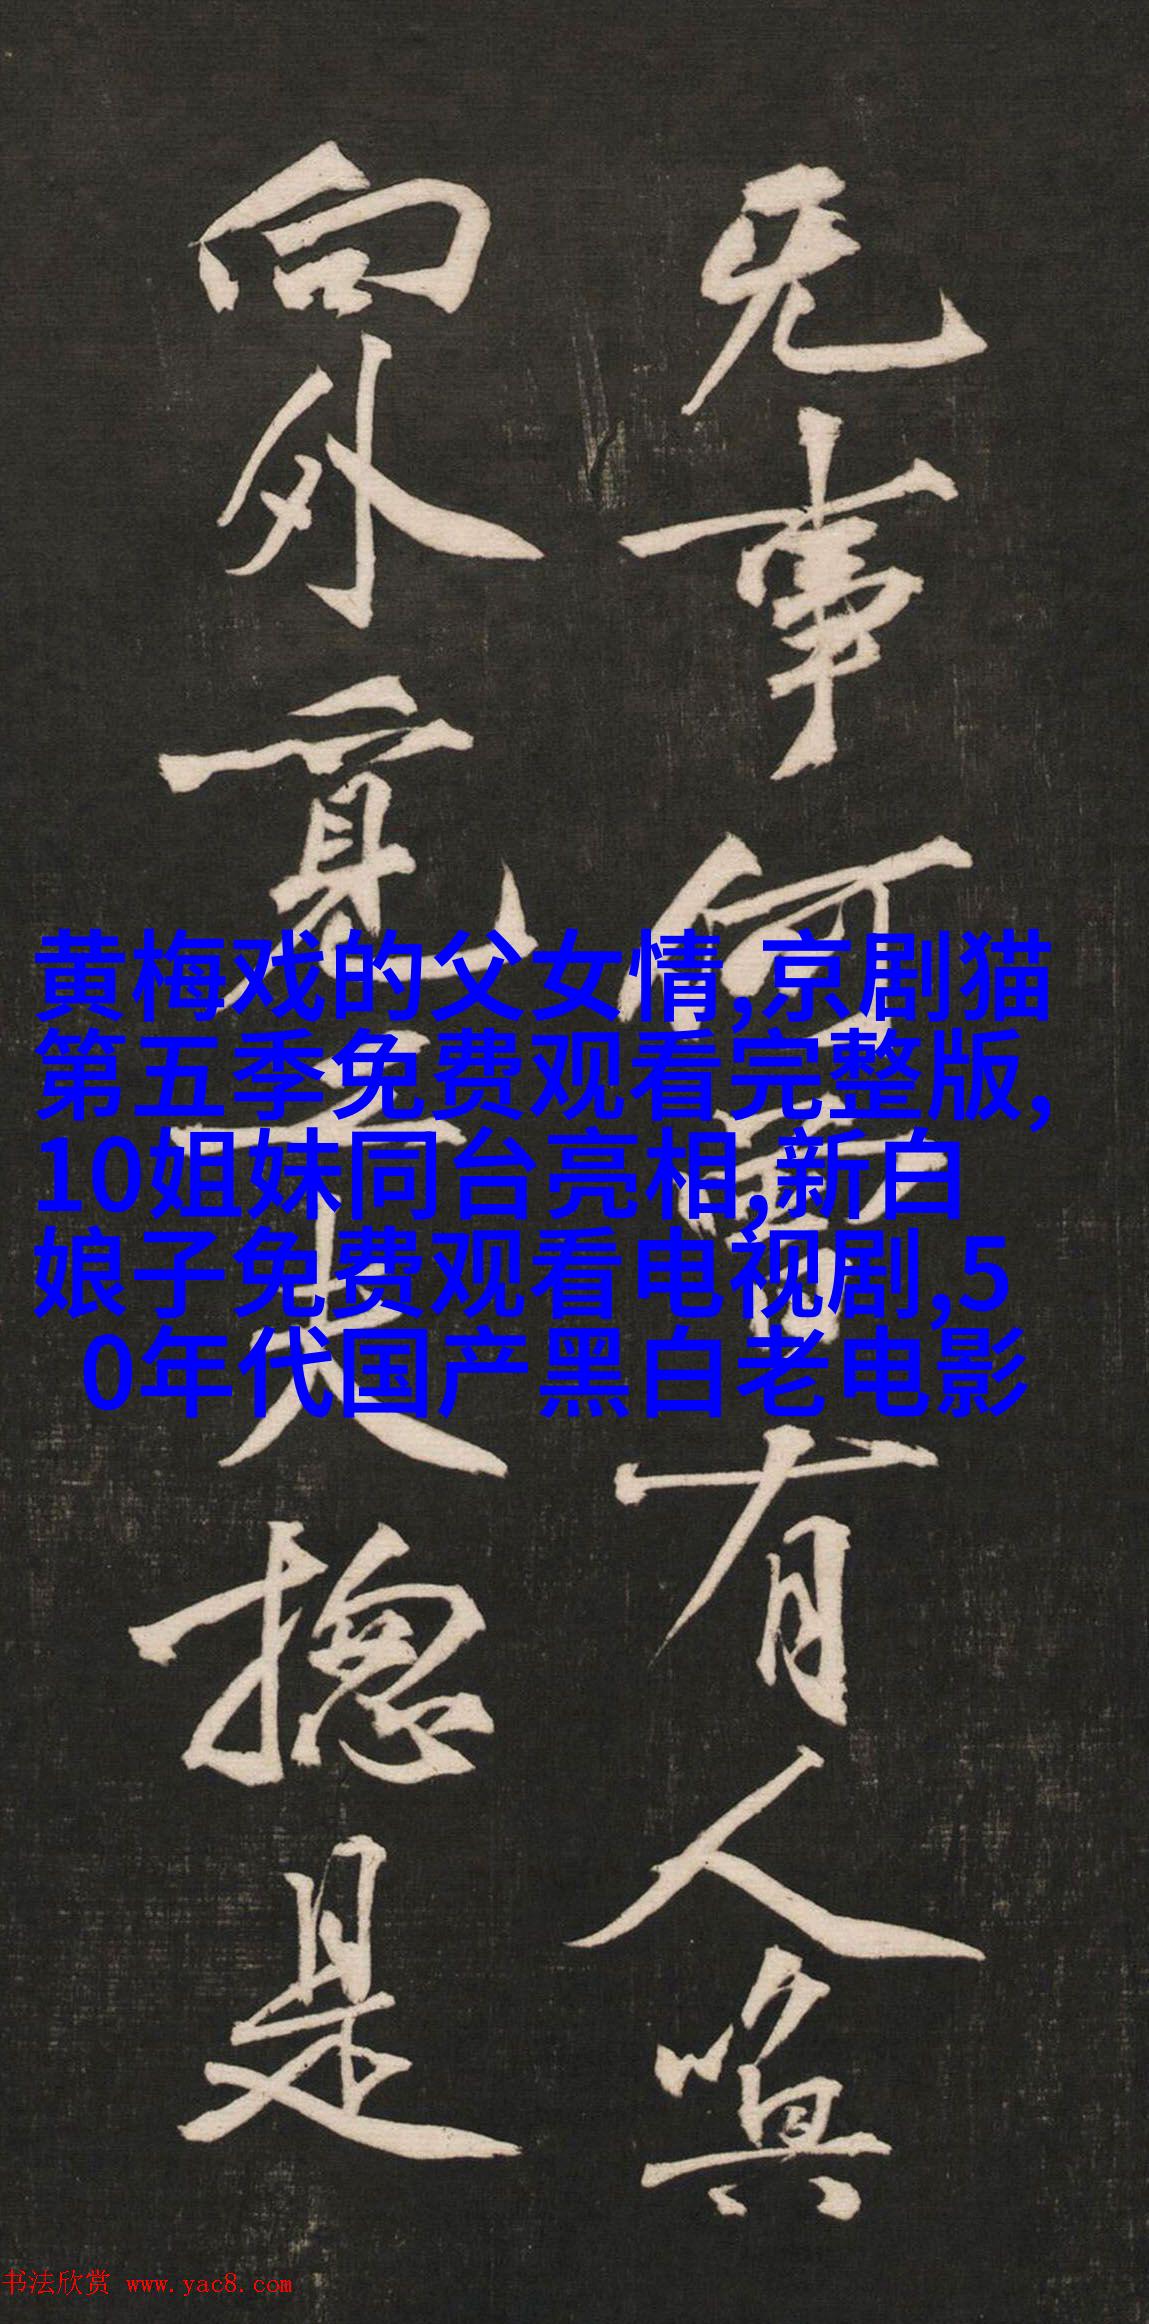 无事何有人喚
向外工夫揔是
黄梅戏的父女情,京剧猫
第五季免费观看完整版,
10姐妹同台亮相,新白
娘子免费观看电视剧,5
0年代国产黑白老电影
书法欣赏 www.yac8.com